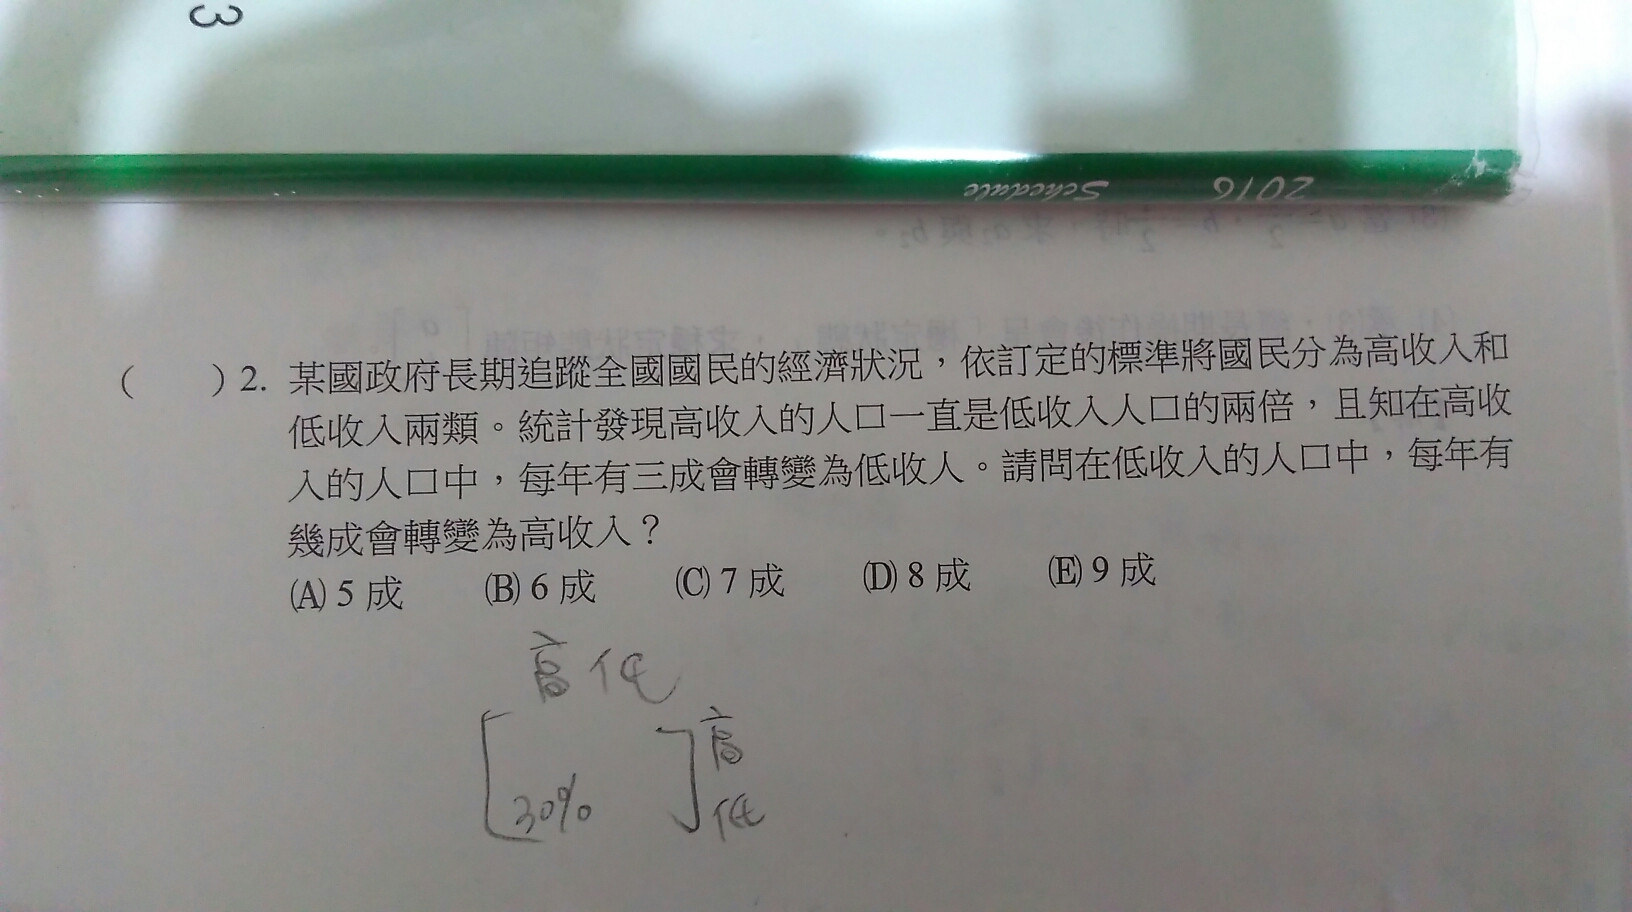 3
2016 Schedule
( ) 2. 某國政府長期追蹤全國國民的經濟狀況，依訂定的標準將國民分為高收入和
低收入兩類。統計發現高收入的人口一直是低收入人口的兩倍，且知在高收
入的人口中，每年有三成會轉變為低收人。請問在低收入的人口中，每年有
幾成會轉變為高收入？
(A) 5 成 (B) 6 成 (C) 7 成 (D) 8 成 (E) 9 成
高 低
高
30% 低